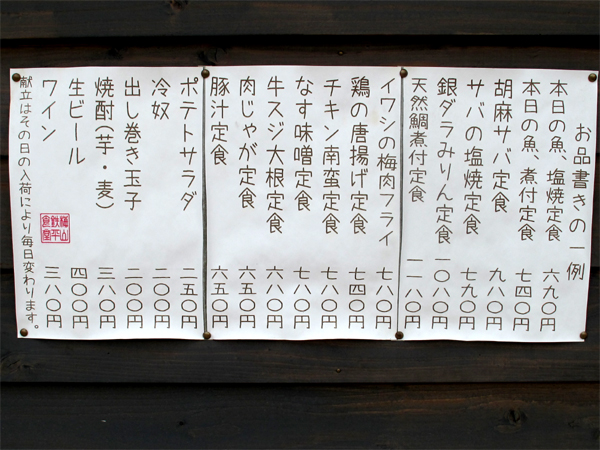 お品書きの一例
本日の魚、塩焼定食 六九〇円
本日の魚、煮付定食 七四〇円
胡麻サバ定食 九八〇円
サバの塩焼定食 七九〇円
銀ダラみりん定食 一〇八〇円
天然鯛煮付定食 一一八〇円
イワシの梅肉フライ 七八〇円
鶏の唐揚げ定食 七四〇円
チキン南蛮定食 七八〇円
なす味噌定食 七八〇円
牛スジ大根定食 六八〇円
肉じゃが定食 六五〇円
豚汁定食 六五〇円
ポテトサラダ 二五〇円
冷奴 二〇〇円
出し巻き玉子 二〇〇円
焼酎(芋・麦) 三八〇円
生ビール 四〇〇円
ワイン 三八〇円
梅山
鉄平
食堂
献立はその日の入荷により毎日変わります。